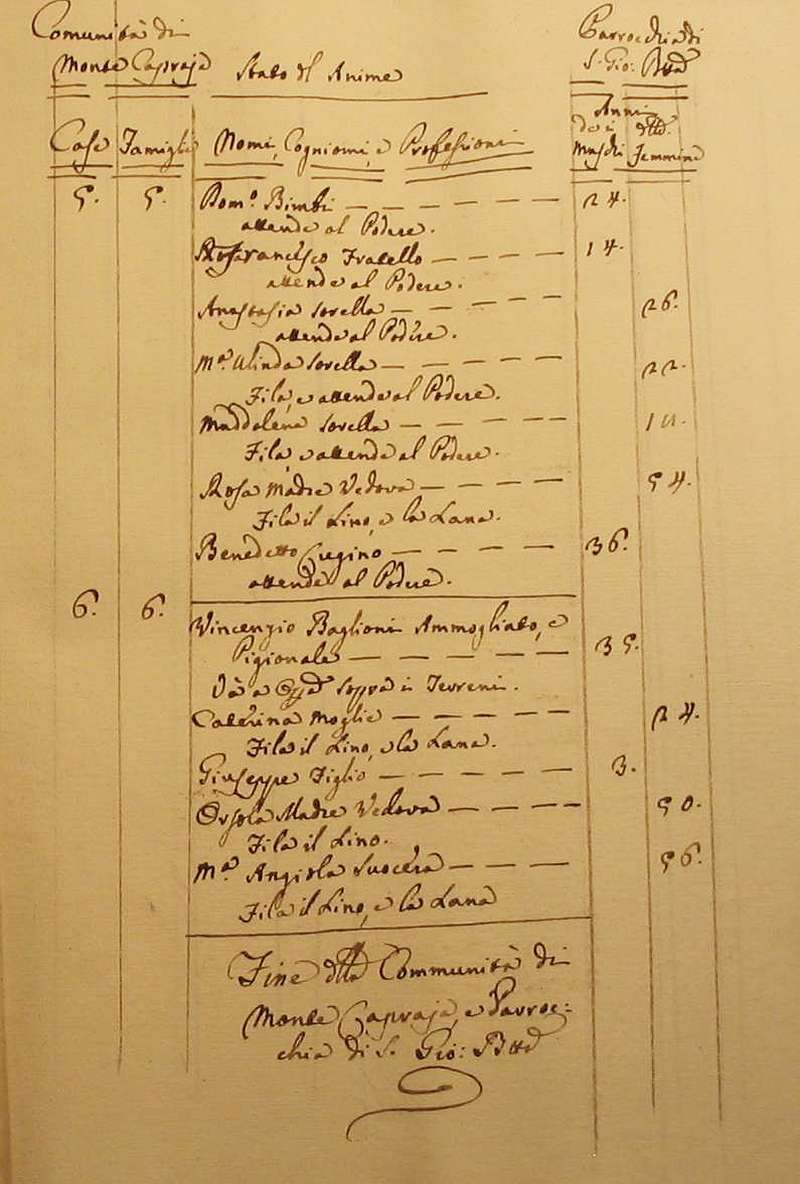 Comunità di
Monte Capraja
Stato dl Anime
Parrocchia di
S. Gio: Btta
Case Famiglie Nomi, Cogniomi, e Professioni
Anni
dei dlle
Maschi Femmine
5. 5. Dom.º Bimbi — — — — — 24.
attende al Podere.
Francesco Fratello — — — — 14.
attende al Podere.
Anastasia Sorella — — — — 26.
attende al Podere.
M.ª Sorella — — — — 22.
Fila, e attende al Podere.
Maddalena Sorella — — — —
Fila, e attende al Podere.
Rosa Madre Vedova — — — — 54.
Fila il Lino, e la Lana.
Benedetto Cugino — — — — 36.
attende al Podere.
6. 6. Vincenzio Baglioni Ammogliato, e
Pigionale — — — — — 35.
Và a sopra i Terreni.
Caterina Moglie — — — — 24.
Fila il Lino, e la Lana.
Giuseppe Figlio — — — — — 3.
Orsola Madre Vedova — — — — 50.
Fila il Lino.
M.ª Angiola Suocera — — — 56.
Fila il Lino, e la Lana
Fine dlla Communità di
Monte Capraja, e Parroc:
chia di S. Gio: Btta